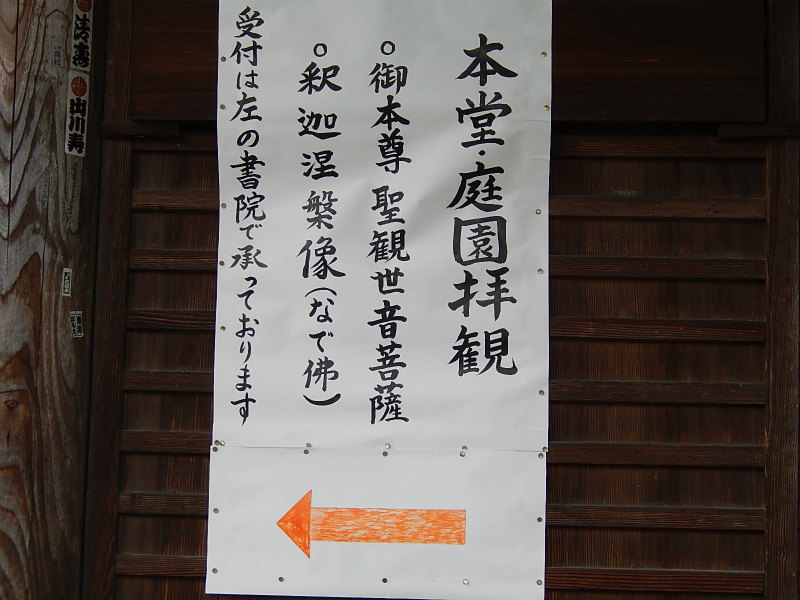 本堂・庭園拝観
○御本尊 聖観世音菩薩
○釈迦涅槃像(なで佛)
受付は左の書院で承っております
出川寿